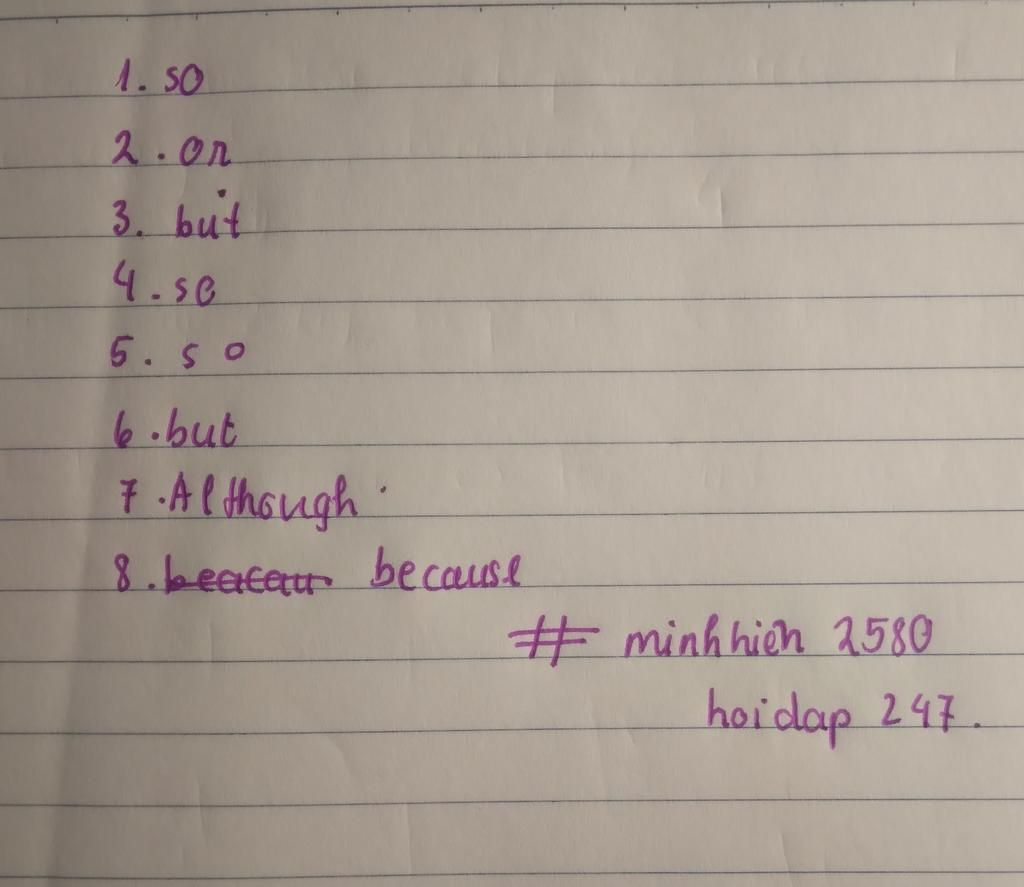 1. so
2. or
3. but
4. so
5. so
6. but
7. Although
8. because
# minhhien 2580
hoidap 247.